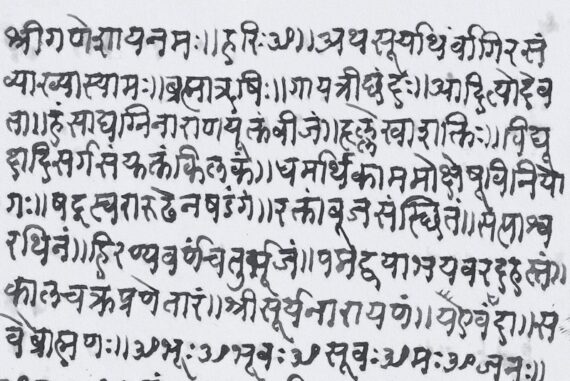 श्रीगणेशायनमः॥हरिःॐ॥अथसूर्याथर्वांगिरसं
व्याख्यास्यामः॥ब्रह्माऋषिः॥गायत्रीछंदः॥आदित्योदेव
ता॥हंसाद्यग्निनाराणयूक्तंबीजं॥हृल्लेखाशक्तिः॥वियु
दादिसर्गसंयक्तंकिलकं॥धर्मार्थकाममोक्षेषूविनियो
गः॥षट्स्वरारूढेनषडंगं॥रक्तांबूजसंस्थितं॥सप्ताश्व
रथिनं॥हिरण्यवर्णंचतुर्भूजं॥पद्मद्वयाभयवरदहस्तं॥
कालचक्रप्रणेतारं॥श्रीसूर्यनारायणं॥यएवंवेद॥स
वैब्राह्मणः॥ॐभूःॐभूवःॐसूवःॐमःॐजनः॥